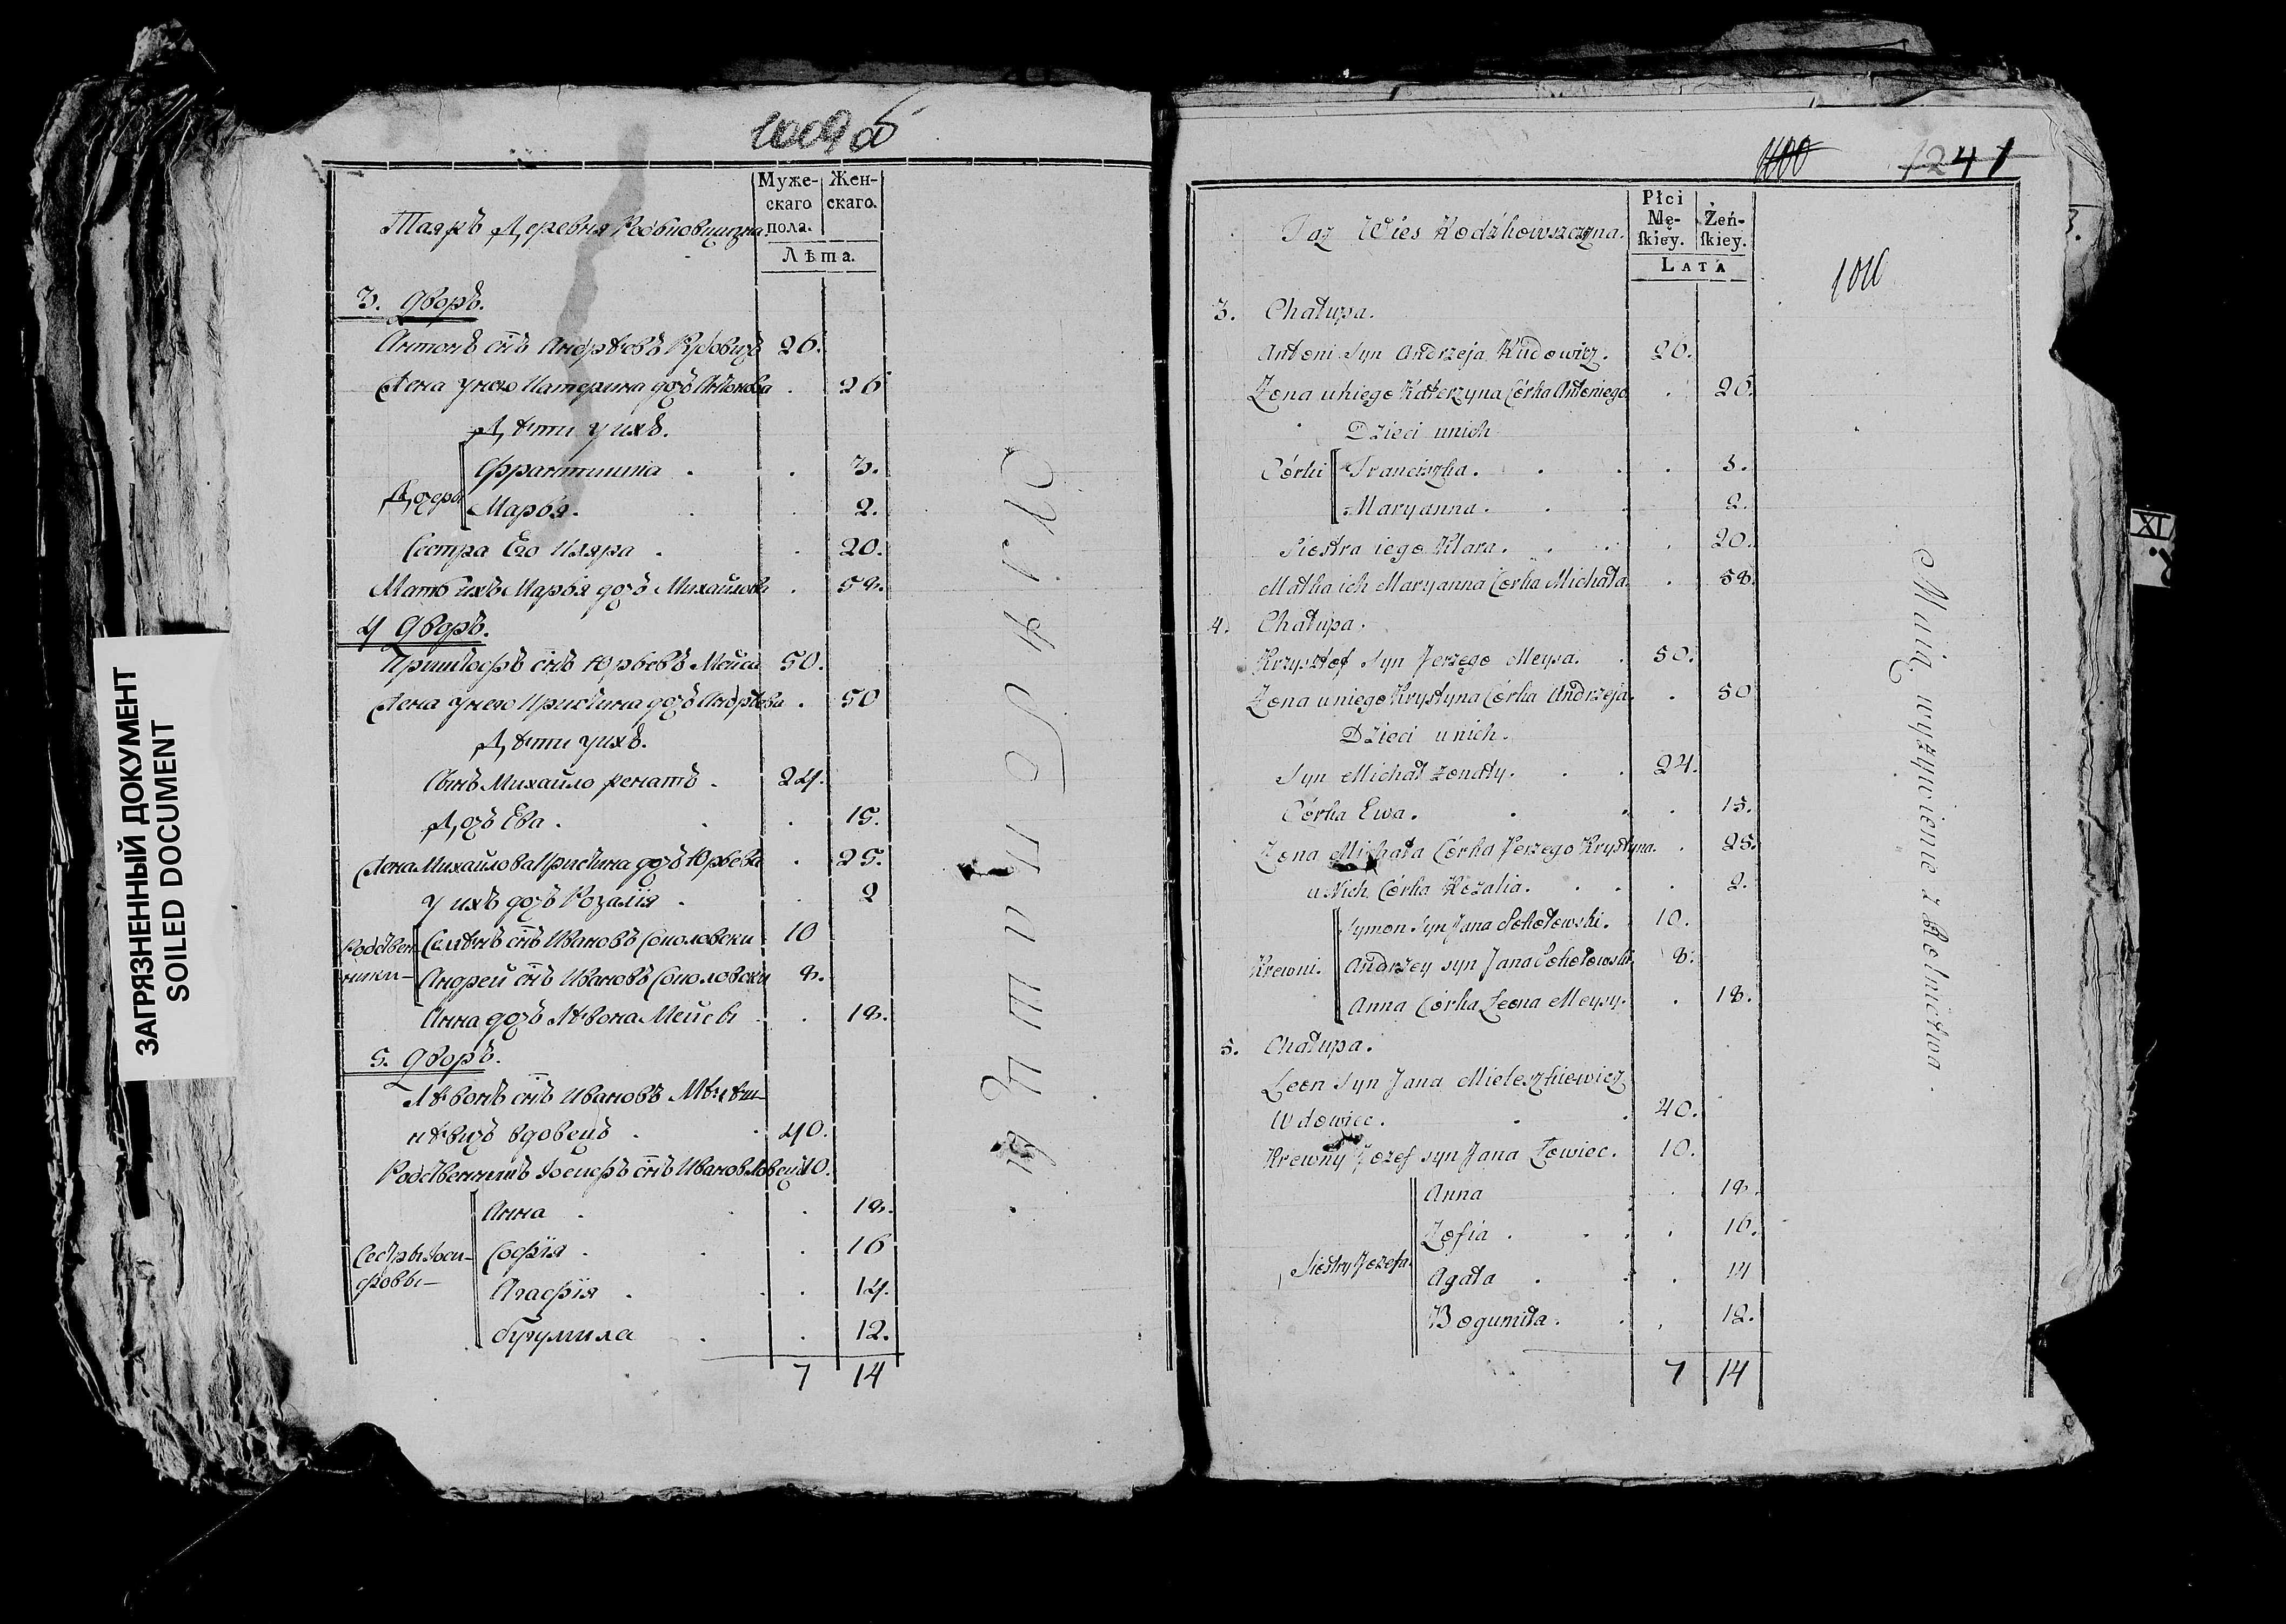 ЗАГРЯЗНЕННЫЙ ДОКУМЕНТ
SOILED DOCUMENT
1009 об
Муже-скаго пола. Жен-скаго.
Лѣта.
Таяжъ Деревня
3. Дворъ.
Антонъ снъ Андрѣевъ 26.
Жена у него Катерина дочь Антонова . 26
Дѣти у ихъ.
Дочери Франтишка . . 3.
Марья . . 2.
Сестра Его Кляра . . 20.
Мать ихъ Марья дочь Михайлова . 58.
4 Дворъ.
Криштофъ снъ Юрьевъ Мейса 50.
Жена у него Кристина дочь Андрѣева . 50
Дѣти у ихъ.
Сынъ Михайло женатъ . 24.
Дочь Ева . . 15.
Жена Михайлова Кристина дочь Юрьева . 25.
у ихъ дочь Розалія . . 2
Родствен-ники Семенъ снъ Ивановъ Соколовски 10
Андрей снъ Ивановъ Соколовски 8.
Анна дочь Лѣвона Мейсы . 18.
5. Дворъ.
Лѣвонъ снъ Ивановъ
вдовецъ . . 40.
Родственникъ Іосифъ снъ Ивановъ Ловецъ 10.
Сестры Іоси-фовы Анна . . 18.
Софія . . 16
Агафія . . 14.
Бугумила . . 12.
7 14
1000
1241
1010
Płci Mę-ſkiey. Żeń-ſkiey.
LATA
Taz Wies Kodźkowszczyzna.
3. Chałupa.
Antoni Syn Andrzeja Kudowicz. 26.
Zona u niego Katerzyna Córka Antoniego . 26.
Dzieci u nich
Córki Franciszka . . 3.
Maryanna . . 2.
Siostra iego Klara . . 20.
Matka ich Maryanna Córka Michała . 58.
4. Chałupa.
Krzysztof Syn Jerzego Meysa. 50.
Zona u niego Krystyna Córka Andrzeja . 50
Dzieci u nich.
Syn Michał zonaty. . . 24.
Córka Ewa. . . 15.
Zona Michała Córka Jerzego Krystyna. . 25.
u Nich Córka Rozalia. . . 2.
Krewni. Symon Syn Jana Sokołowski. 10.
Andrzey syn Jana Sokołowski 8.
Anna Córka Leona Meysy. . 18.
5. Chałupa.
Leon Syn Jana Mieleszkiewicz
Wdowiec. . . 40.
Krewny Jozef syn Jana Łowiec. 10.
Siostry Jozefa Anna . 18.
Zofia . . 16.
Agata . . 14
Bogumiła . . 12.
7 14
Maią wyżywienie z Rolnictwa.